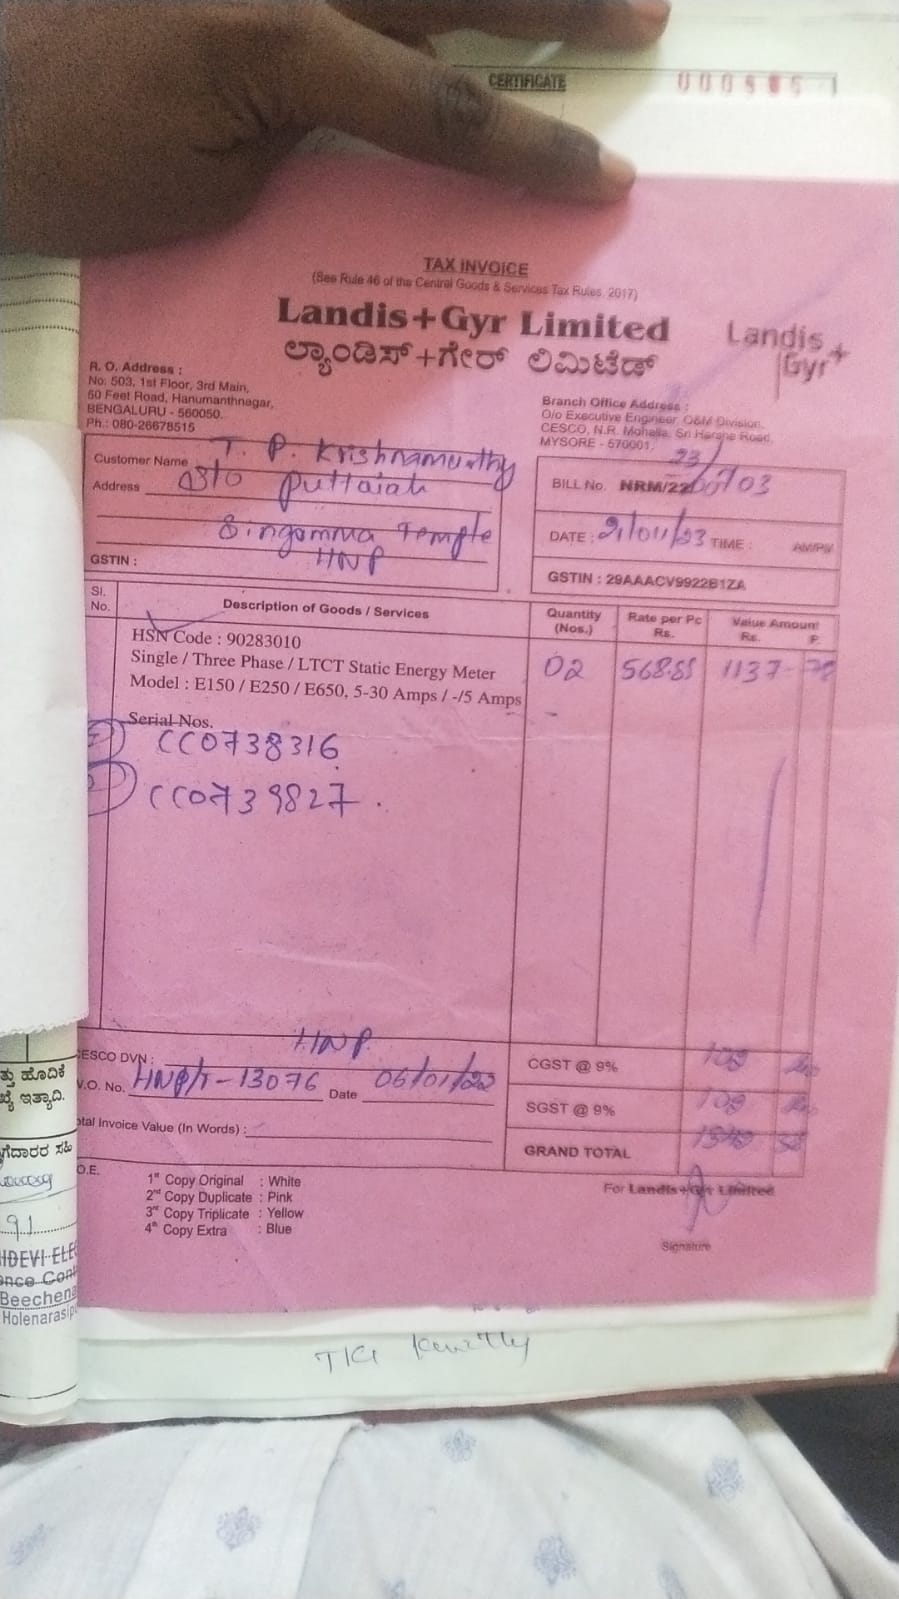 CERTIFICATE
TAX INVOICE
(See Rule 46 of the Central Goods & Services Tax Rules, 2017)
Landis+Gyr Limited
ಲ್ಯಾಂಡಿಸ್+ಗೇರ್ ಲಿಮಿಟೆಡ್
Landis
Gyr+
R. O. Address :
No. 503, 1st Floor, 3rd Main,
50 Feet Road, Hanumanthnagar,
BENGALURU - 560050.
Ph.: 080-26678515
Branch Office Address :
O/o Executive Engineer, O&M Division,
CESCO, N.R. Mohalla, Sri Harsha Road,
MYSORE - 570001.
Customer Name T. P. Krishnamurthy
Address S/o Puttaiah
Singamma Temple
HNP
GSTIN :
23/
BILL No. NRM/22 /03
DATE : 2/01/23 TIME : AM/PM
GSTIN : 29AAACV9922B1ZA
Sl. No. Description of Goods / Services Quantity (Nos.) Rate per Pc Rs. Value Amount Rs. P.
HSN Code : 90283010
Single / Three Phase / LTCT Static Energy Meter 02 568.85 1137-
Model : E150 / E250 / E650, 5-30 Amps / -/5 Amps
Serial Nos.
CC0738316
CC0739827.
CESCO DVN : HNP
W.O. No. HNP/T-13076 Date 06/01/22
Total Invoice Value (In Words) :
CGST @ 9% 102
SGST @ 9% 102
GRAND TOTAL
O.E.
1st Copy Original : White
2nd Copy Duplicate : Pink
3rd Copy Triplicate : Yellow
4th Copy Extra : Blue
For Landis+Gyr Limited
Signature
ತ್ತು ಹೊದಿಕೆ
ಖ್ಯೆ ಇತ್ಯಾದಿ.
ಗೆದಾರರ ಸಹಿ
91
HDEVI ELE
ance Cont
Beechena
Holenarasip